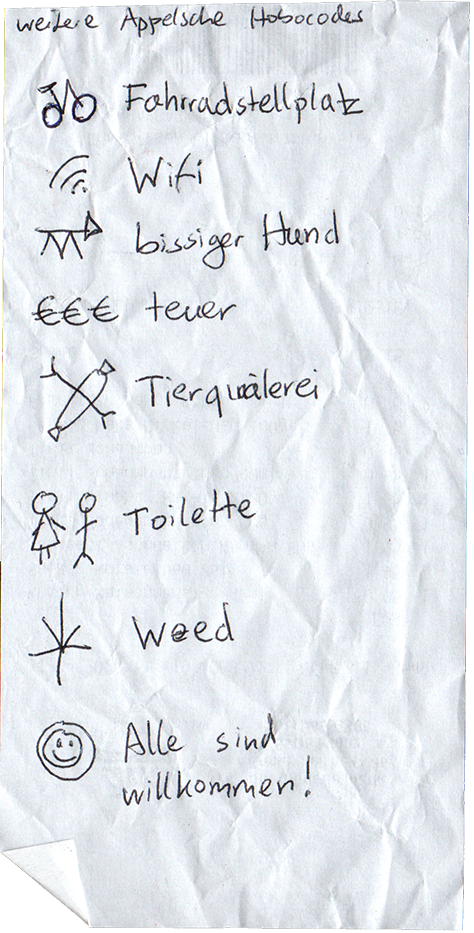 weitere Appelsche Hobocodes
Fahrradstellplatz
Wifi
bissiger Hund
€€€ teuer
Tierquälerei
Toilette
Weed
Alle sind
willkommen!